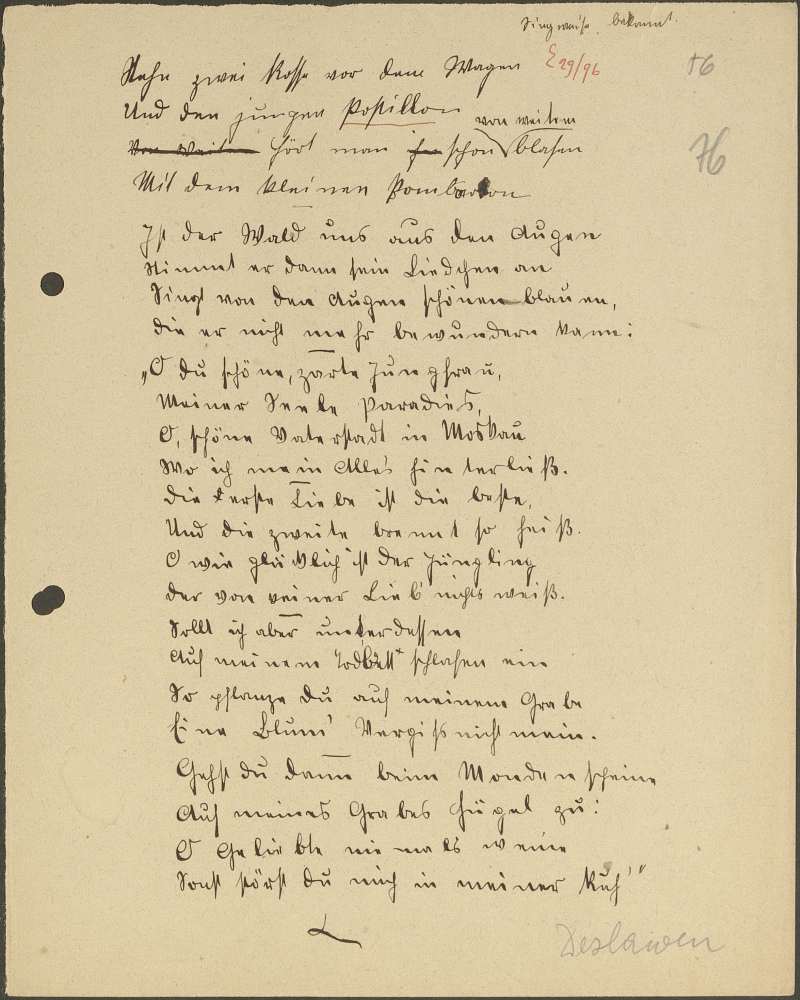 Singweise bekannt.
E 29/96
76
Stehn zwei Rosse vor dem Wagen
Und den jungen Postillon
von weitem
Von weitem hört man schon blasen
Mit dem kleinen Bombardon
Ist der Wald uns aus den Augen
Stimmt er dann sein Liedchen an
Singt von den Augen schönen blauen,
die er nicht mehr bewundern kann:
„O du schöne, zarte Jungfrau,
Meiner Seele Paradies,
O, schöne Vaterstadt in Moskau
Wo ich mein Alles hinterließ.
Die erste Liebe ist die beste,
Und die zweite brennt so heiß.
O wie glücklich ist der Jüngling
der von reiner Lieb' nichts weiß.
Sollt ich aber unterdessen
Auf meinem Todbett schlafen ein
So pflanze du auf meinem Grabe
Eine Blum' Vergissnichtmein.
Gehst du dann beim Mondenscheine
Auf meines Grabes Hügel zu:
O Geliebte niemals weine
Sonst störst du mich in meiner Ruh'"
Deslawen